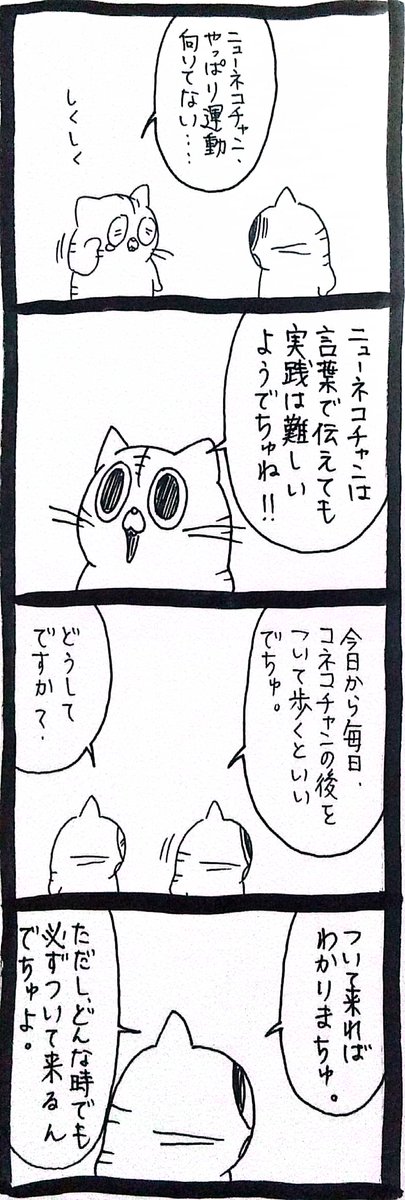 ニューネコチャン、
やっぱり運動
向いてない…
しくしく
ニューネコチャンは
言葉で伝えても
実践は難しい
ようでちゅね!!
今日から毎日、
コネコチャンの後を
ついて歩くといい
でちゅ。
どうして
ですか?
ついて来れば
わかりまちゅ。
ただし、どんな時でも
必ずついて来るん
でちゅよ。